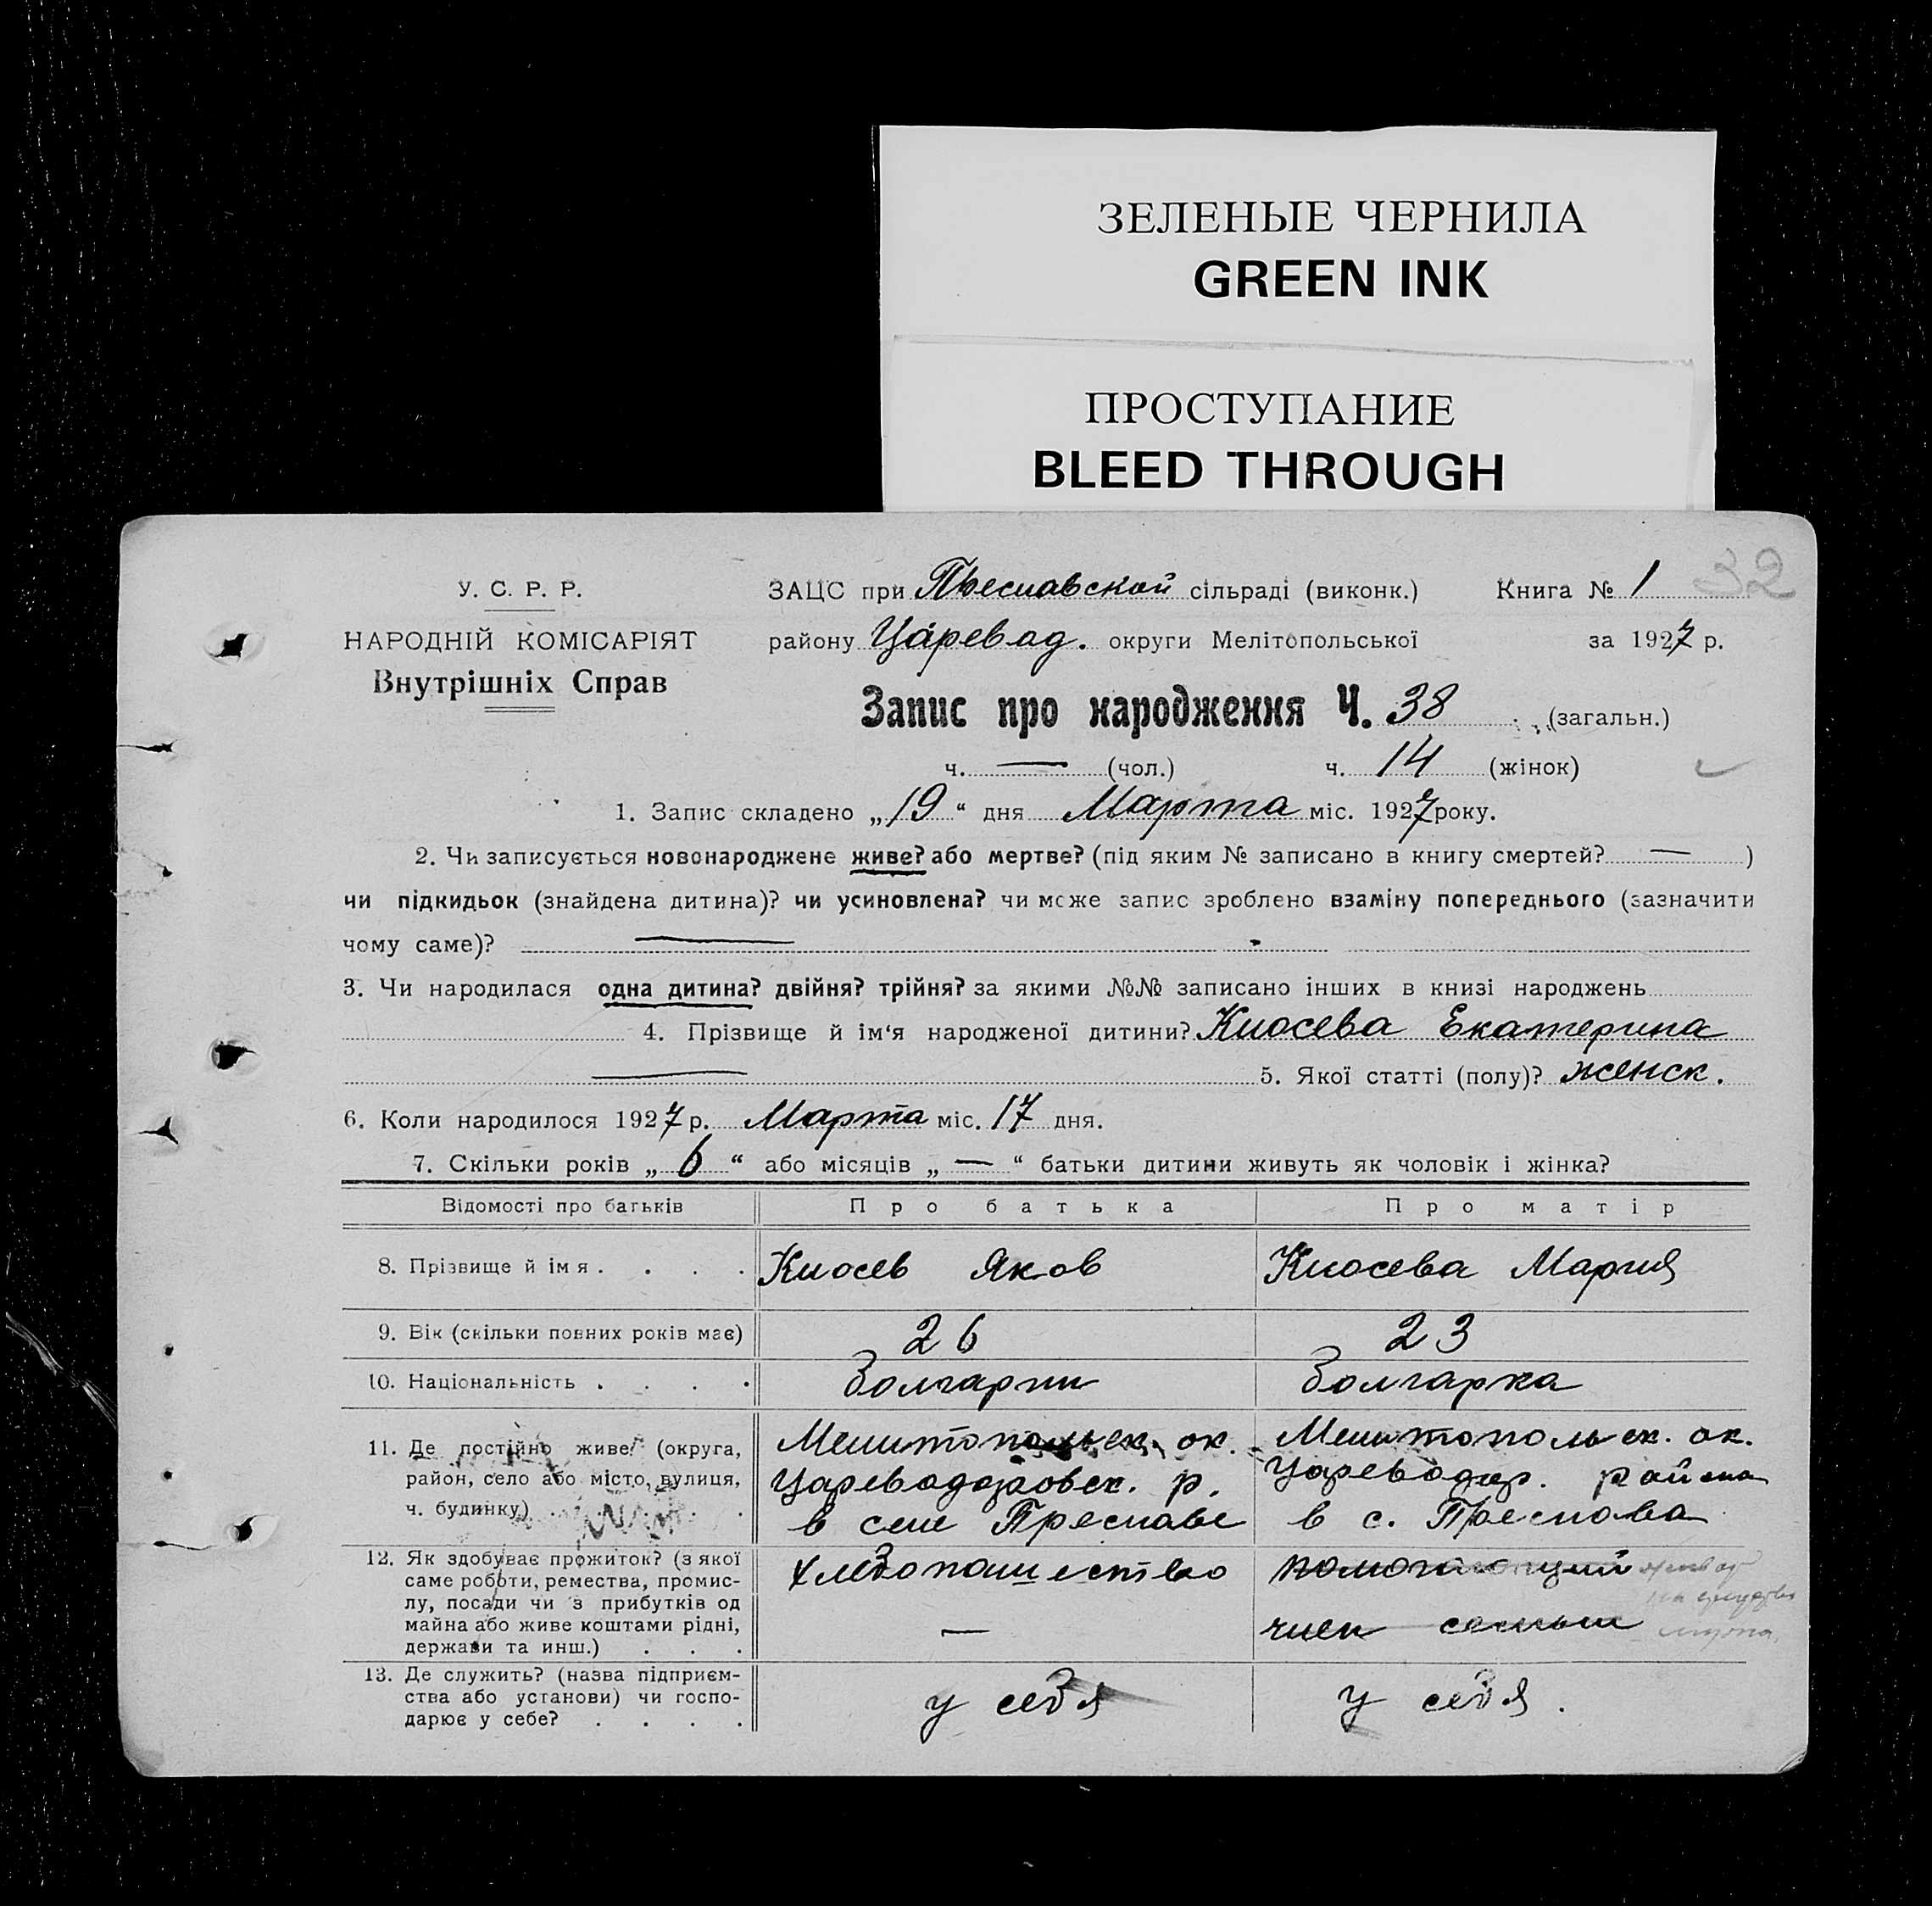 ЗЕЛЕНЫЕ ЧЕРНИЛА
GREEN INK
ПРОСТУПАНИЕ
BLEED THROUGH
32
У. С. Р. Р.
НАРОДНІЙ КОМІСАРІЯТ
Внутрішніх Справ
ЗАЦС при Преславской сільраді (виконк.) Книга № 1
району Царевод. округи Мелітопольської за 1927 р.
Запис про народження Ч. 38 (загальн.)
ч. — (чол.) ч. 14 (жінок)
1. Запис складено „19“ дня Марта міс. 1927 року.
2. Чи записується новонароджене живе? або мертве? (під яким № записано в книгу смертей? — )
чи підкидьок (знайдена дитина)? чи усиновлена? чи може запис зроблено взаміну попереднього (зазначити
чому саме)? —
3. Чи народилася одна дитина? двійня? трійня? за якими №№ записано інших в книзі народжень
4. Прізвище й ім‘я народженої дитини? Киосева Екатерина
— 5. Якої статті (полу)? женск.
6. Коли народилося 1927 р. Марта міс. 17 дня.
7. Скільки років „ 6 “ або місяців „ — “ батьки дитини живуть як чоловік і жінка?
Відомості про батьків Про батька Про матір
8. Прізвище й імя . . . . Киосев Яков Киосева Мария
9. Вік (скільки повних років має) 26 23
10. Національність . . . . Болгарин Болгарка
11. Де постійно живе (округа,
район, село або місто, вулиця,
ч. будинку) . . . .
Мелитопольск. ок.
Цареводаровск. р.
в селе Преславе
Мелитопольск. ок.
Цареводар. района
в с. Преслава
12. Як здобуває прожиток? (з якої
саме роботи, ремества, промис-
лу, посади чи з прибутків од
майна або живе коштами рідні,
держави та инш.) . . .
хлебопашество
—
помогающий
член семьи
мужа.
13. Де служить? (назва підприєм-
ства або установи) чи госпо-
дарює у себе? . . . .
у себя
у себя.